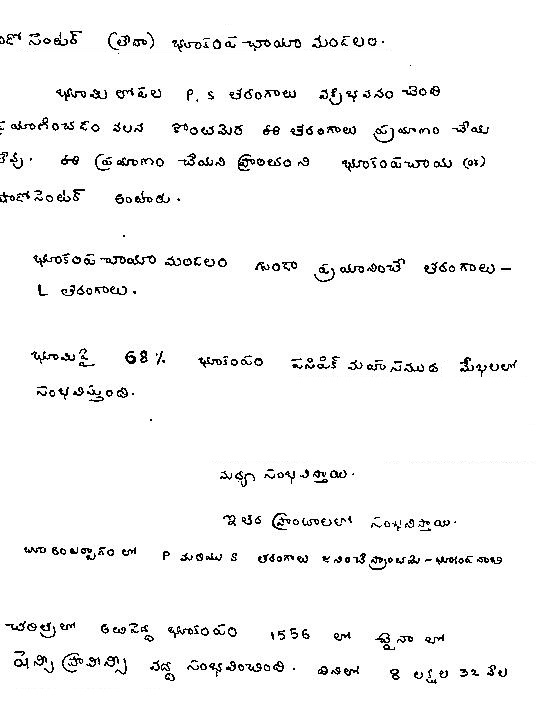 సెంటర్ (లేదా) భూకంప ఛాయా మండలం.
భూమి లోపల P, S తరంగాలు వక్రీభవనం చెంది
ప్రయాణించడం వలన కొంతమేర ఈ తరంగాలు ప్రయాణం చేయ
లేవు. ఈ ప్రయాణం చేయని ప్రాంతంని భూకంపఛాయ (లేదా)
షాడోసెంటర్ అంటారు.
భూకంప ఛాయా మండలం గుండా ప్రయానించే తరంగాలు -
L తరంగాలు.
భూమిపై 68% భూకంపం పసిఫిక్ మహాసముద్ర మేఖలలో
సంభవిస్తుంది.
మధ్య సంభవిస్తాయి.
ఇతర ప్రాంతాలలో సంభవిస్తాయి.
లో P మరియు S తరంగాలు జనించే ప్రాంతమే - భూకంపనాభి
చరిత్రలో అతిపెద్ద భూకంపం 1556 లో చైనా లో
షెన్సి ప్రావిన్సి వద్ద సంభవించింది. దీనిలో 8 లక్షల 32 వేల